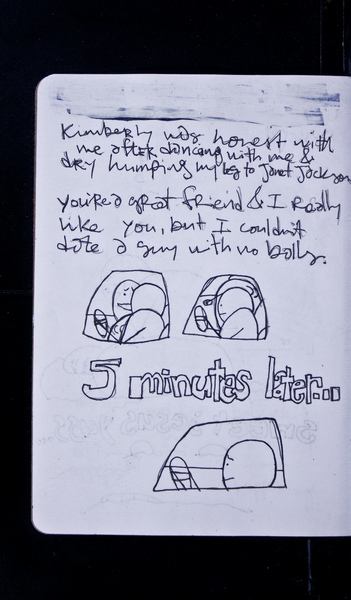 Kimberly was honest with
me after dancing with me &
dry humping my leg to Janet Jackson
you're a great friend & I really
like you, but I couldn't
date a guy with no balls.
5 minutes later...